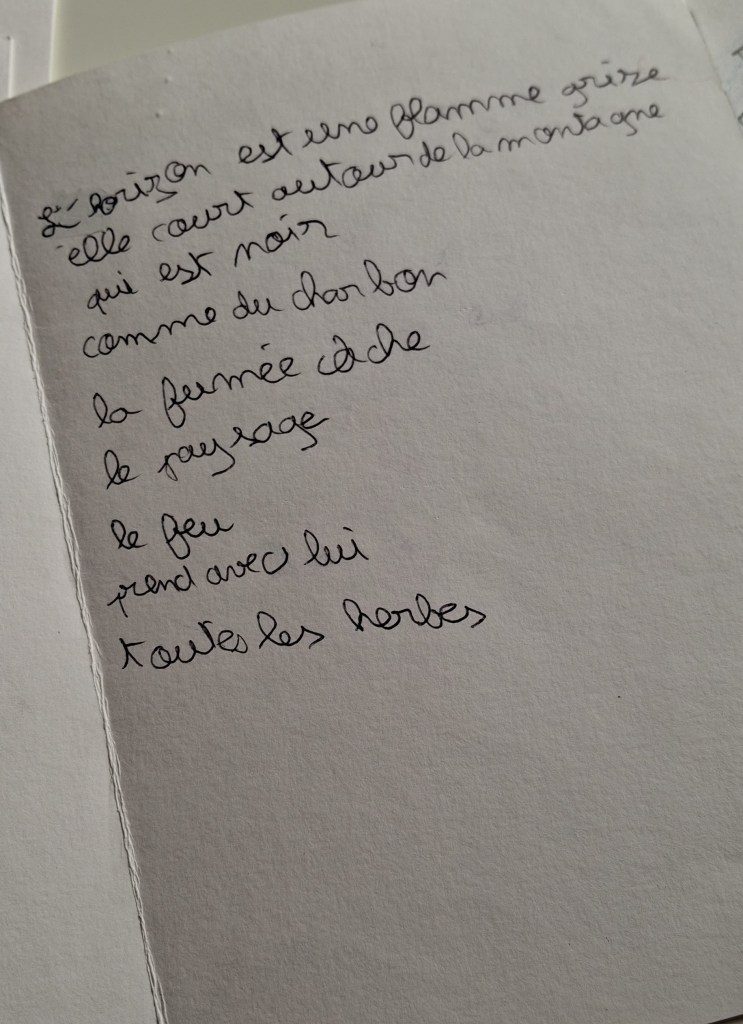 L'horizon est une flamme grise
elle court autour de la montagne
qui est noir
comme du charbon
la fumée cache
le paysage
le feu
prend avec lui
toutes les herbes